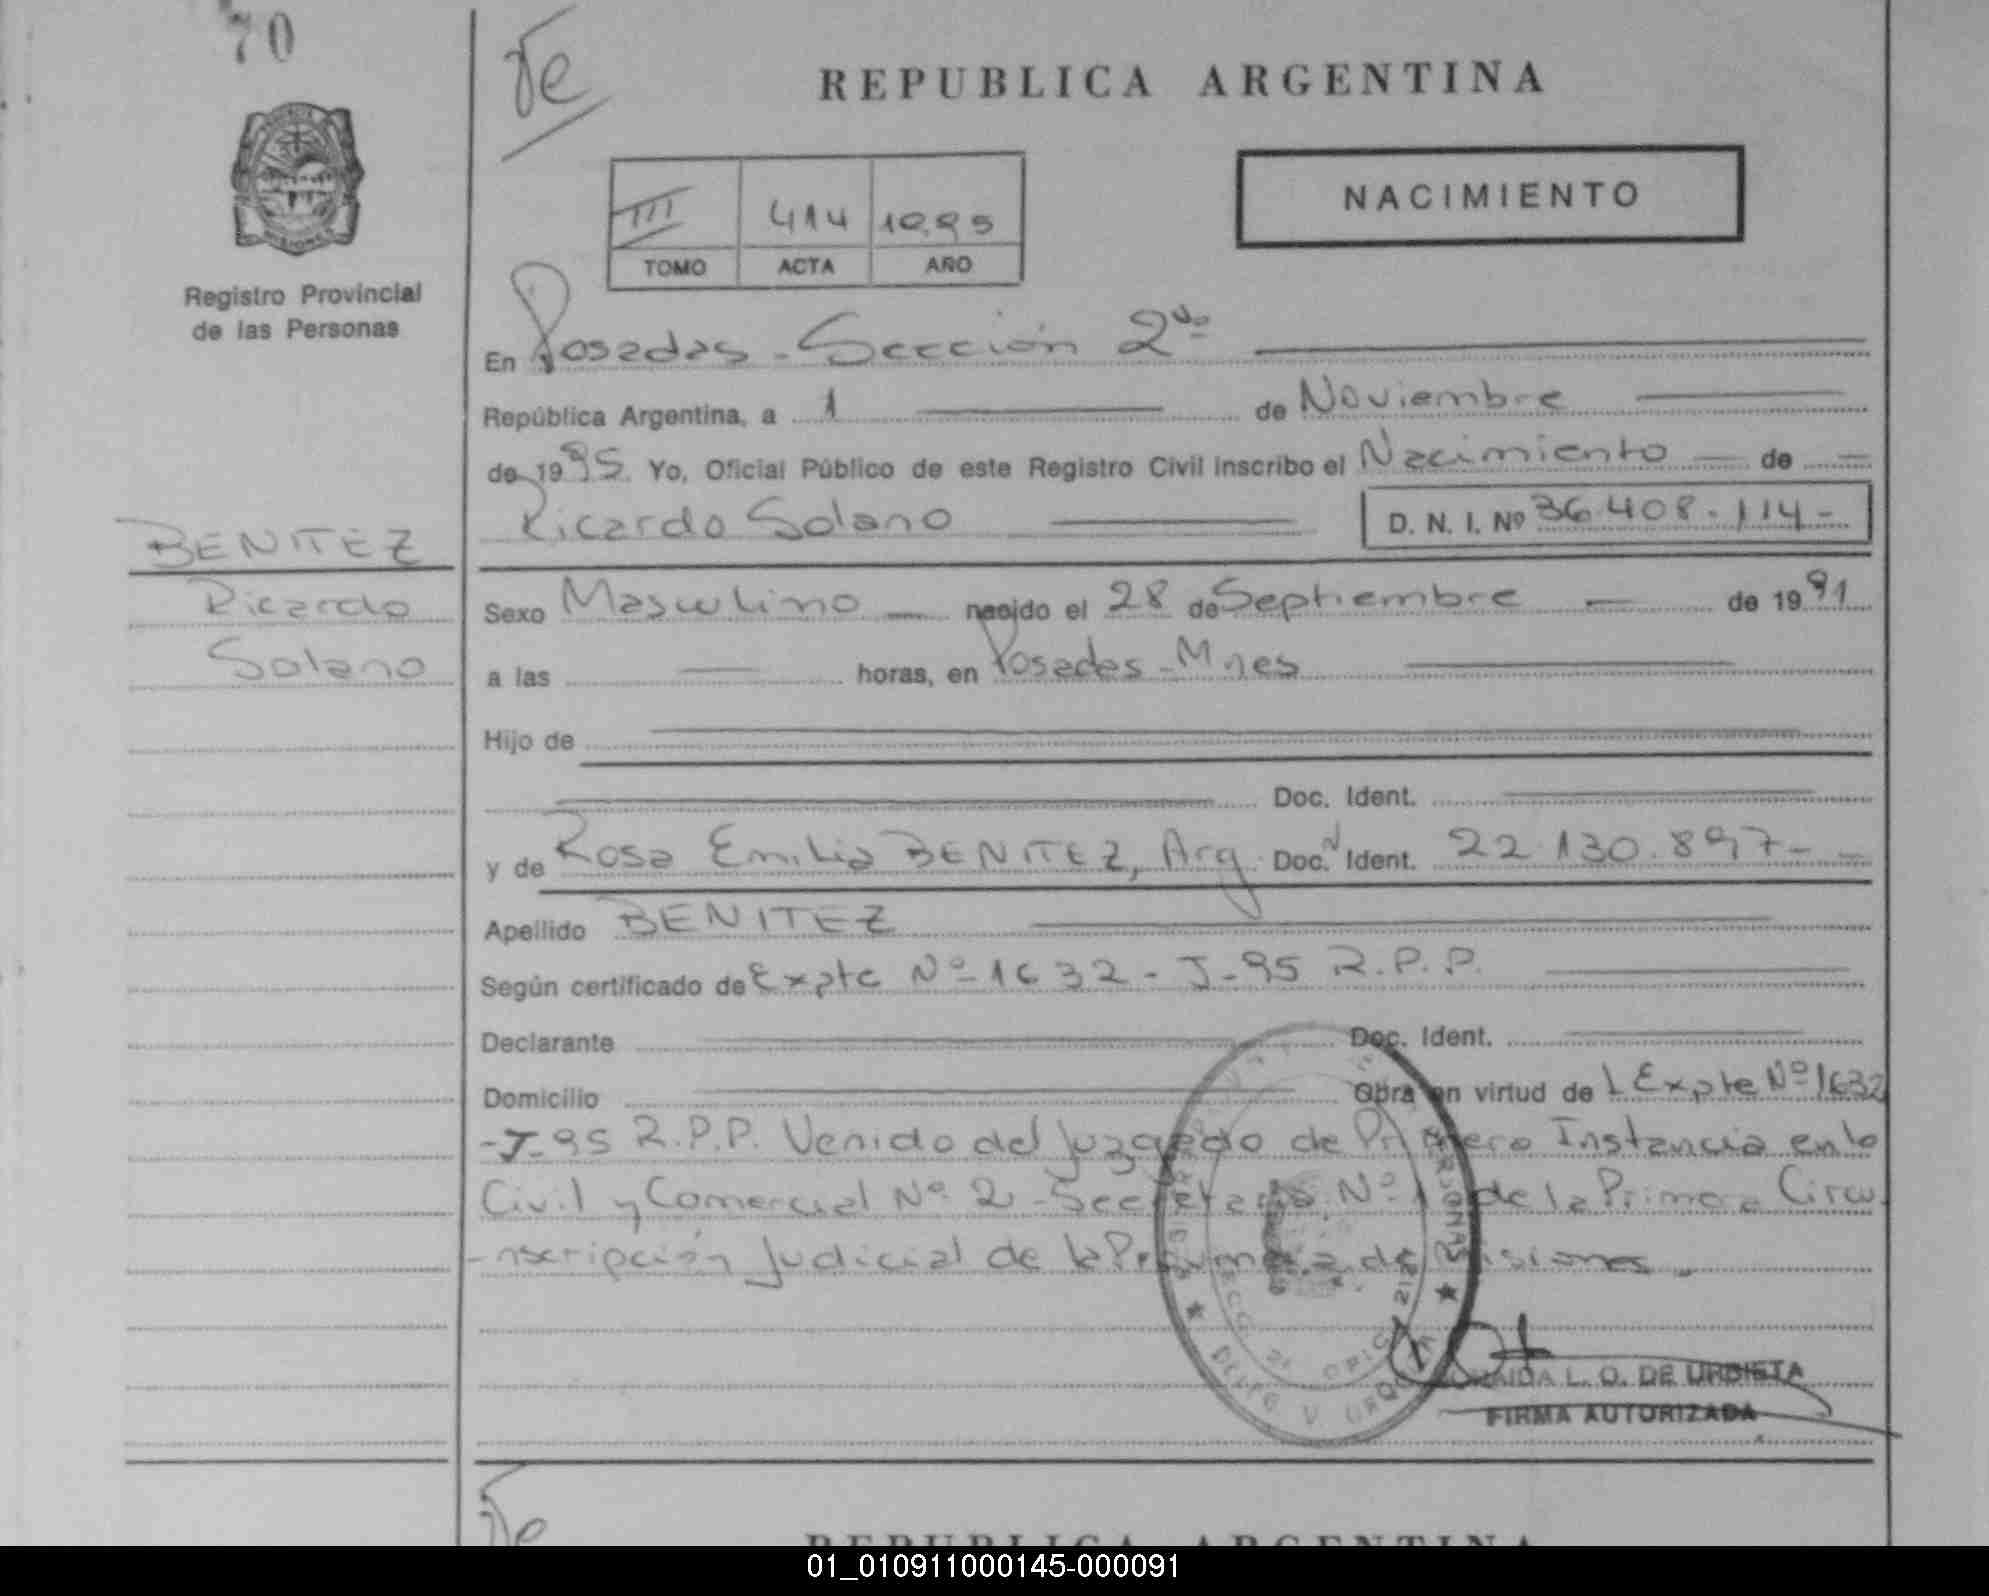 70
Te
REPUBLICA ARGENTINA
NACIMIENTO
III 414 1995
TOMO ACTA AÑO
Registro Provincial
de las Personas
En Posadas - Sección 2da
República Argentina, a 1 de Noviembre
de 1995. Yo, Oficial Público de este Registro Civil inscribo el Nacimiento — de —
Ricardo Solano D. N. I. Nº 36.408.114-
BENITEZ
Ricardo
Solano
Sexo Masculino — nacido el 28 de Septiembre — de 1991
a las — horas, en Posadas - Mnes
Hijo de
Doc. Ident.
y de Rosa Emilia BENITEZ, Arg. Doc. Ident. 22.130.897-
Apellido BENITEZ
Según certificado de Expte Nº 1632 - J-95 R.P.P.
Declarante Doc. Ident.
Domicilio Obra en virtud de l Expte Nº 1632
-J-95 R.P.P. Venido del Juzgado de Primera Instancia en lo
Civil y Comercial Nº 2 - Secretaria Nº 1 de la Primera Circu
-nscripción Judicial de la Provincia de Misiones.
L. O. DE URDIETA
FIRMA AUTORIZADA
Te
REPUBLICA ARGENTINA
01_010911000145-000091